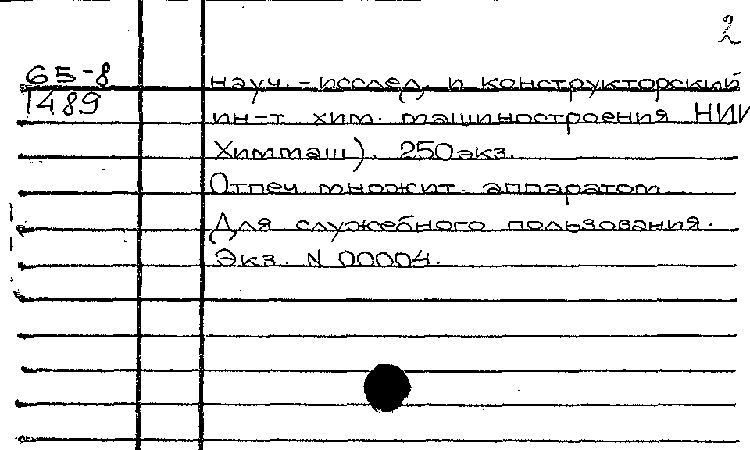 2
65-8
1489
науч.-исслед. и конструкторский
ин-т хим. машиностроения НИИ
Химмаш). 250экз.
Отпеч. множит. аппаратом.
Для служебного пользования.
Экз. N 00004.